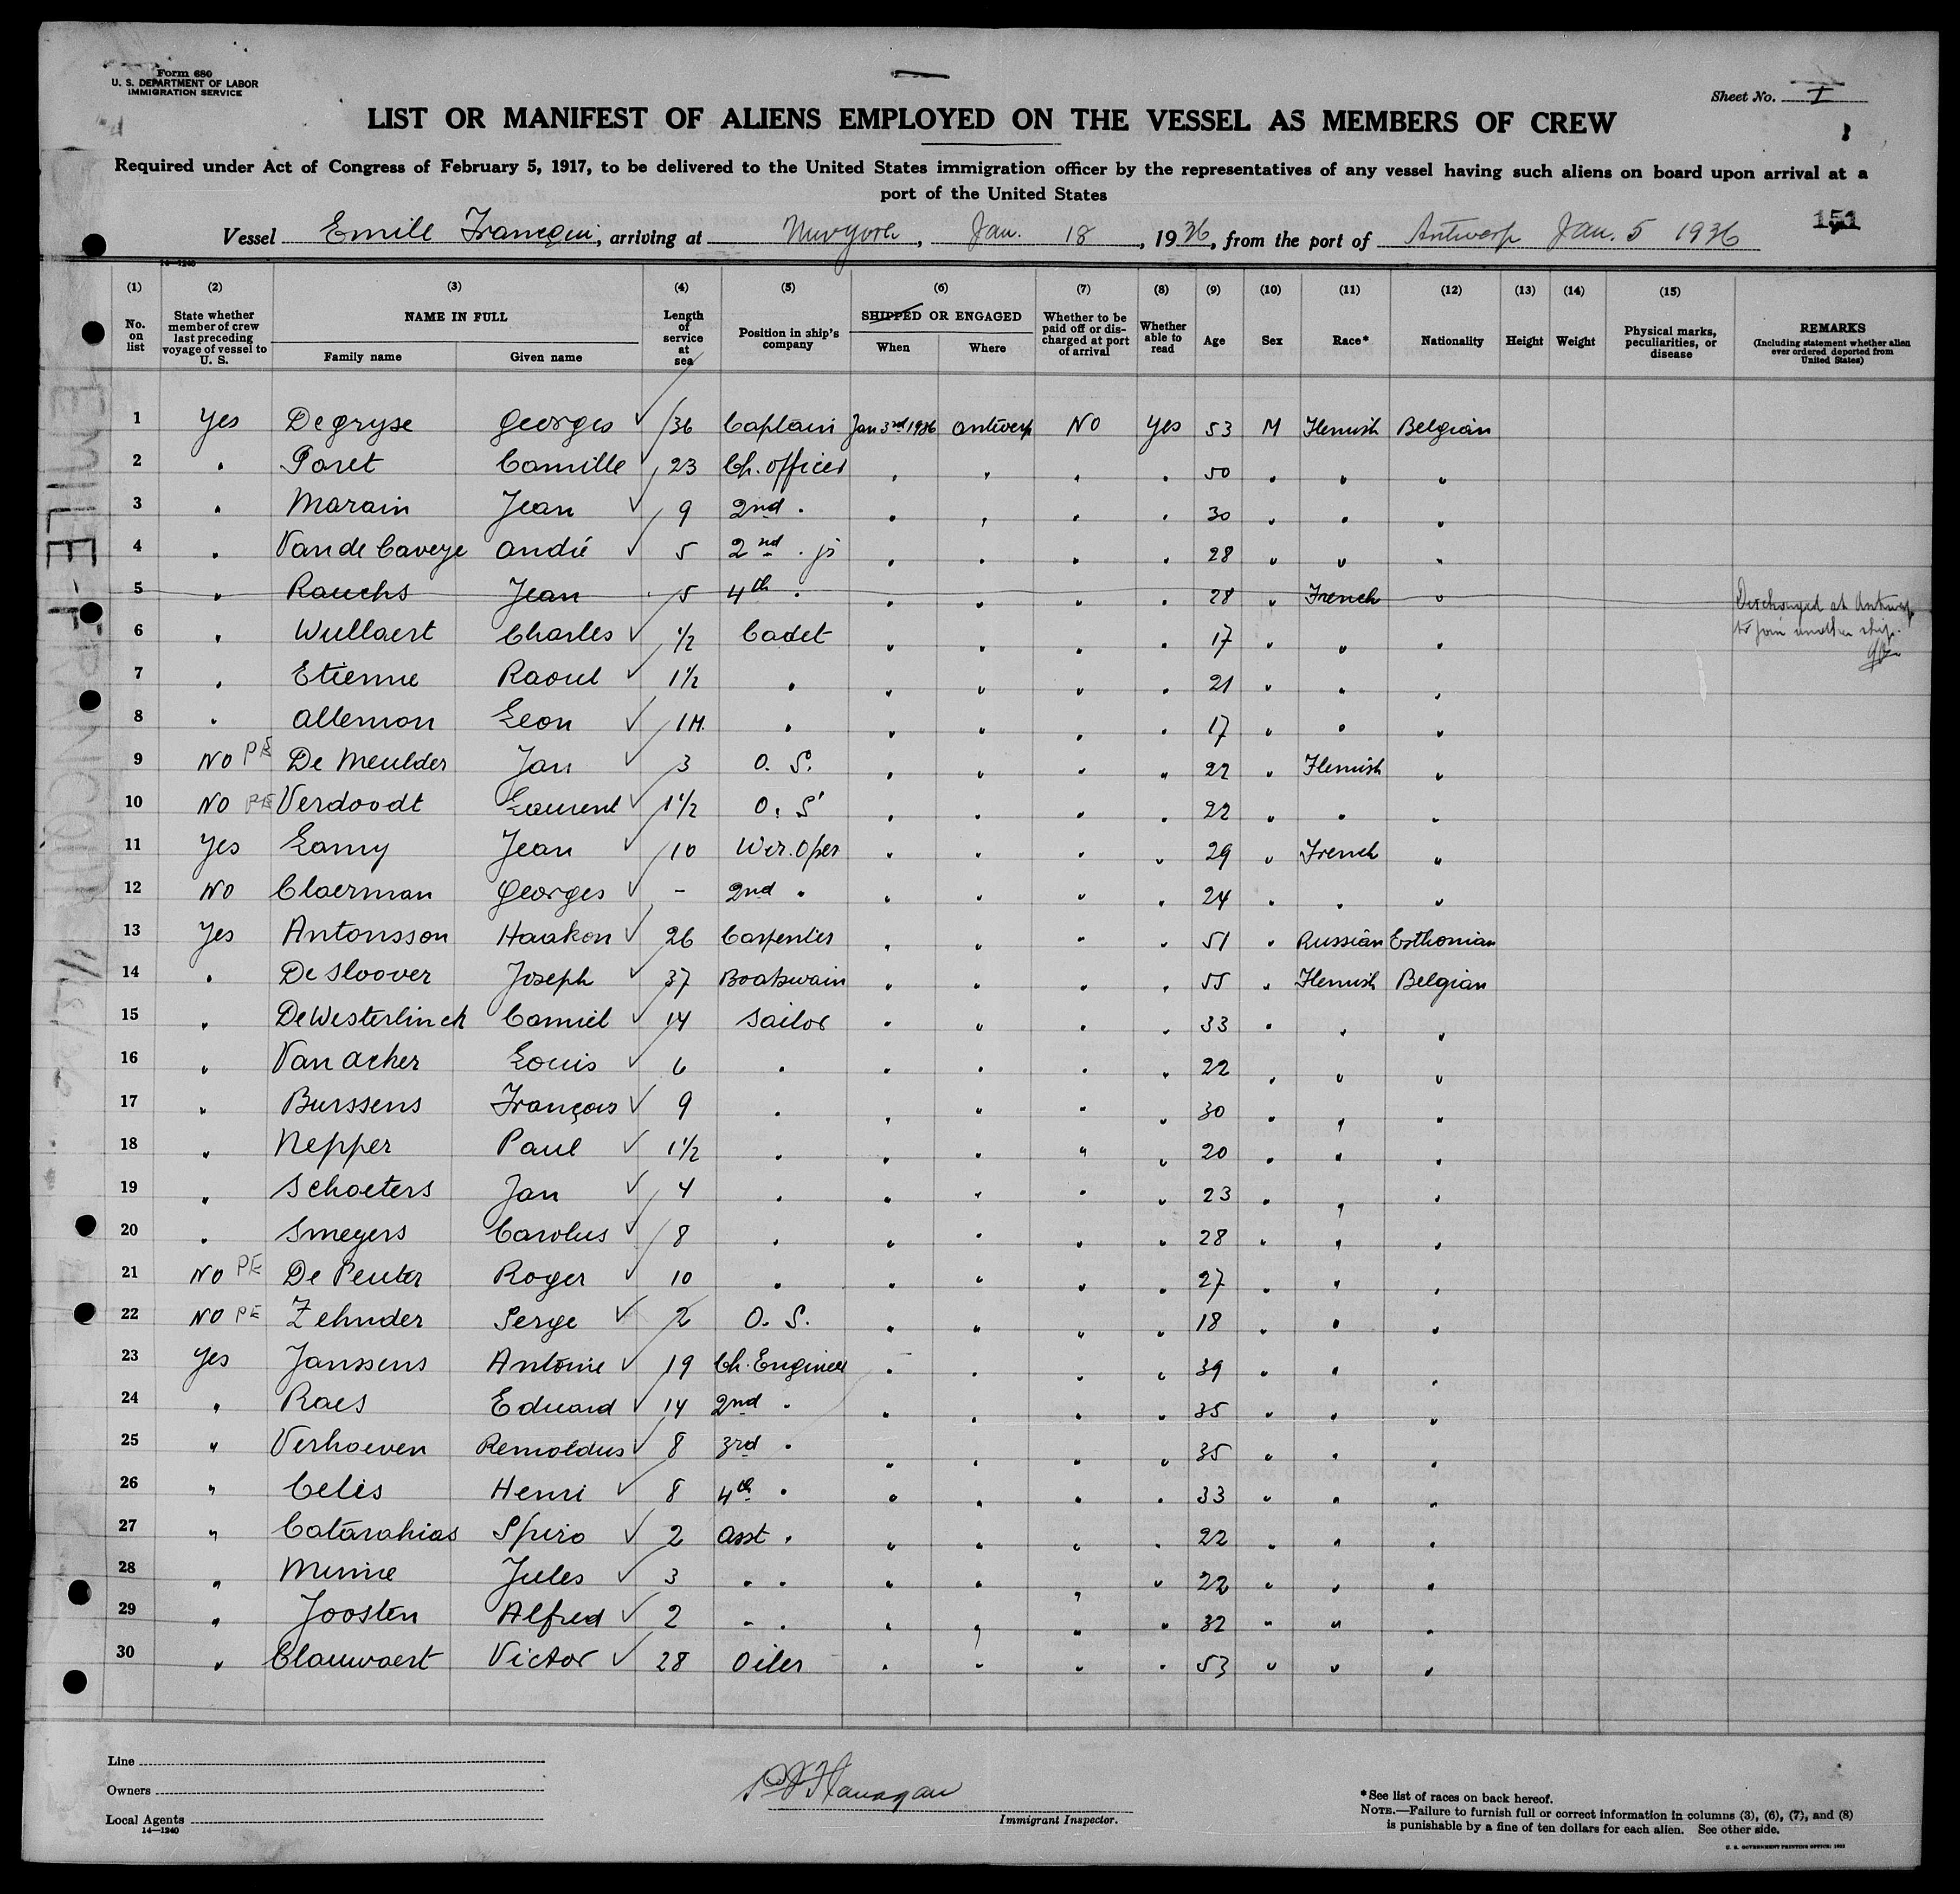 Form 680
U. S. DEPARTMENT OF LABOR
IMMIGRATION SERVICE
Sheet No. I
LIST OR MANIFEST OF ALIENS EMPLOYED ON THE VESSEL AS MEMBERS OF CREW
Required under Act of Congress of February 5, 1917, to be delivered to the United States immigration officer by the representatives of any vessel having such aliens on board upon arrival at a
port of the United States
151
Vessel Emile Francqui, arriving at New York, Jan. 18, 1936, from the port of Antwerp Jan. 5 1936
14—1240
(1) No. on list (2) State whether member of crew last preceding voyage of vessel to U. S. (3) NAME IN FULL Family name Given name (4) Length of service at sea (5) Position in ship's company (6) SHIPPED OR ENGAGED When Where (7) Whether to be paid off or discharged at port of arrival (8) Whether able to read (9) Age (10) Sex (11) Race* (12) Nationality (13) Height (14) Weight (15) Physical marks, peculiarities, or disease REMARKS (Including statement whether alien ever ordered deported from United States)
1 Yes Degryse Georges 36 Captain Jan 3rd 1936 Antwerp No Yes 53 M Flemish Belgian
2 " Poret Camille 23 Ch. Officer " " " " 50 " " "
3 " Marain Jean 9 2nd " " " " " 30 " " "
4 " Van de Caveye André 5 2nd " jr " " " " 28 " " "
5 " Rauchs Jean 5 4th " " " " " 28 " French " Discharged at Antwerp
to join another ship.
6 " Wullaert Charles 1/2 Cadet " " " " 17 " " "
7 " Etienne Raoul 1 1/2 " " " " " 21 " " "
8 " Allemon Leon 1 M. " " " " " 17 " " "
9 No PE De Meulder Jan 3 O. S. " " " " 22 " Flemish "
10 No PE Verdoodt Laurent 1 1/2 O. S " " " " 22 " " "
11 Yes Lamy Jean 10 Wir. Oper " " " " 29 " French "
12 No Claerman Georges - 2nd " " " " " 24 " " "
13 Yes Antonsson Haakon 26 Carpenter " " " " 51 " Russian Esthonian
14 " De Sloover Joseph 37 Boatswain " " " " 55 " Flemish Belgian
15 " De Westerlinck Camiel 14 Sailor " " " " 33 " " "
16 " Van Acker Louis 6 " " " " " 22 " " "
17 " Burssens François 9 " " " " " 30 " " "
18 " Nepper Paul 1 1/2 " " " " " 20 " " "
19 " Schoeters Jan 4 " " " " " 23 " " "
20 " Smeyers Carolus 8 " " " " " 28 " " "
21 No PE De Peuter Roger 10 " " " " " 27 " " "
22 No PE Zehnder Serge 2 O. S. " " " " 18 " " "
23 Yes Janssens Antoine 19 Ch. Engineer " " " " 39 " " "
24 " Raes Eduard 14 2nd " " " " " 35 " " "
25 " Verhoeven Remoldus 8 3rd " " " " " 35 " " "
26 " Celis Henri 8 4th " " " " " 33 " " "
27 " Catarahias Spiro 2 Asst " " " " " 22 " " "
28 " Minne Jules 3 " " " " " " 22 " " "
29 " Joosten Alfred 2 " " " " " " 32 " " "
30 " Clauwaert Victor 28 Oiler " " " " 53 " " "
EMILE-FRANCQUI
Line
Owners
Local Agents
14—1240
Flanagan
Immigrant Inspector.
*See list of races on back hereof.
NOTE.—Failure to furnish full or correct information in columns (3), (6), (7), and (8)
is punishable by a fine of ten dollars for each alien. See other side.